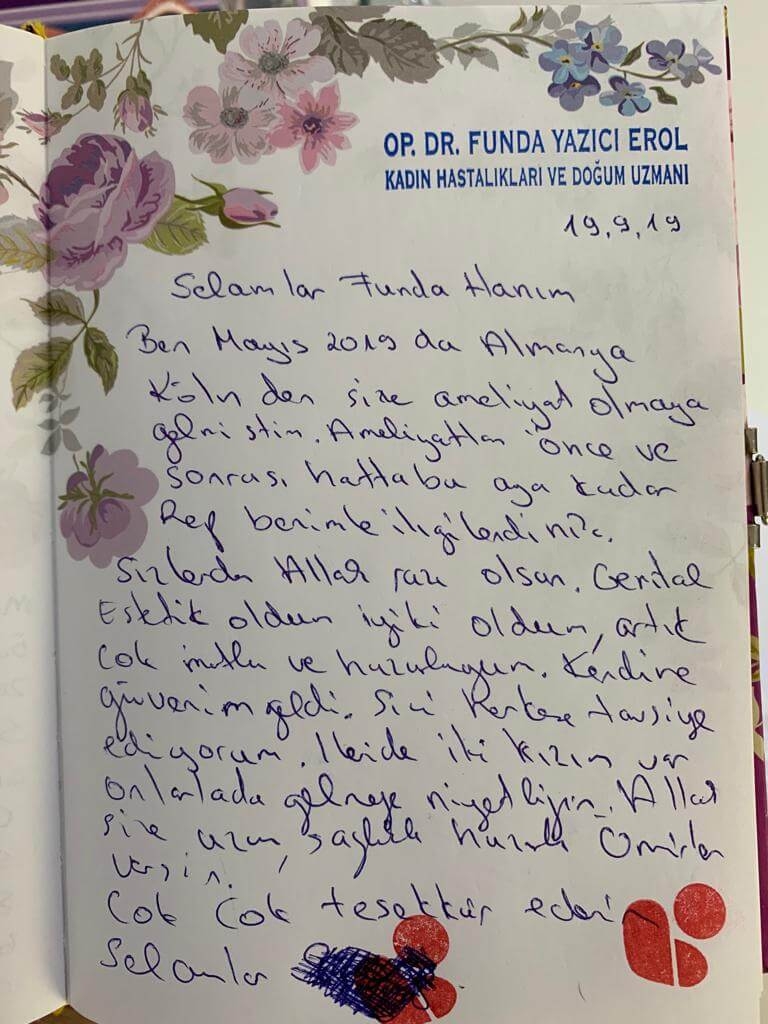 OP. DR. FUNDA YAZICI EROL
KADIN HASTALIKLARI VE DOĞUM UZMANI
19.9.19
Selamlar Funda Hanım
Ben Mayıs 2019 da Almanya
Köln den size ameliyat olmaya
gelmiştim. Ameliyattan önce ve
sonrası hatta bu aya kadar
Hep benimle ilgilendiniz.
Sizlerden Allah razı olsun. Genital
Estetik oldum iyiki oldum, artık
çok mutlu ve huzurluyum. Kendime
güvenim geldi. Sizi herkese tavsiye
ediyorum. İleride iki kızım var
onlarlada gelmeye niyetliyim. Allah
size uzun, sağlıklı huzurlu Ömürler
versin.
Çok Çok teşekkür ederim
Selamlar